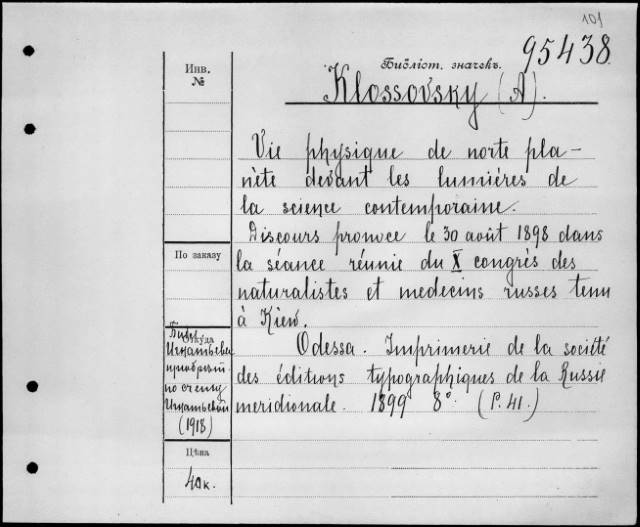 101
95438
Библіот. значекъ.
Инв.
№
Klossovsky (A).
Vie physique de norte pla-
nète devant les lumières de
la science contemporaine.
Discours pronoce le 30 août 1898 dans
la séance réunie du X congrès des
naturalistes et medecins russes tenu
à Kiew.
По заказу
Odessa. Imprimerie de la société
des éditions typographiques de la Russie
meridionale. 1899 8°. (P. 41.)
Откуда
Игнатьева
по счету
(1918)
Цѣна
40к.